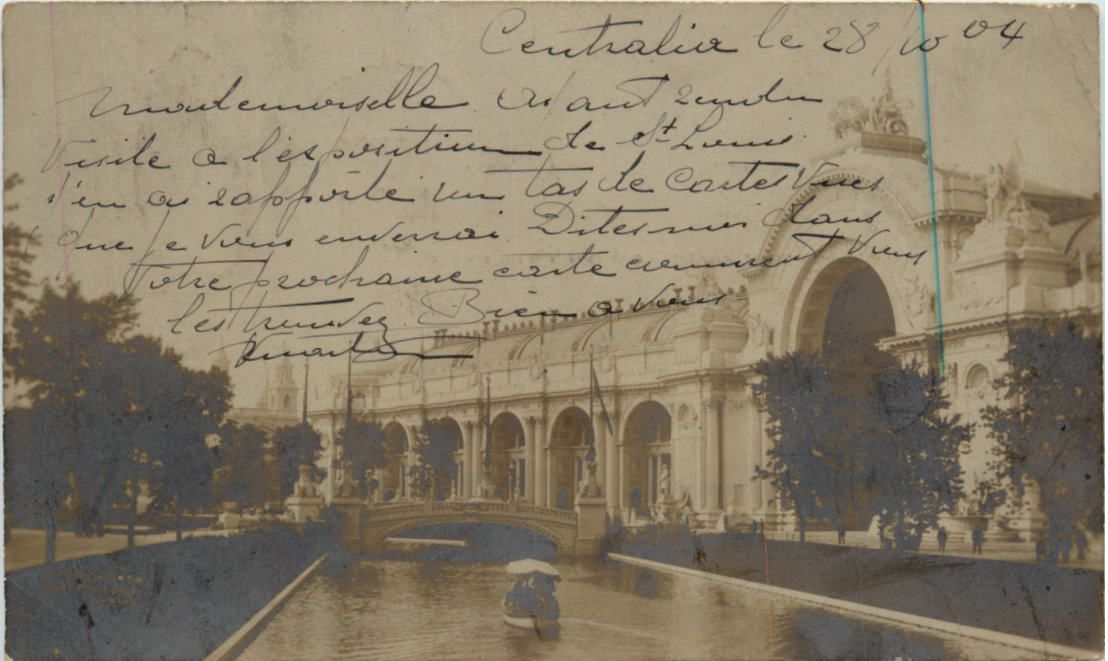 Centralia le 28/10 04
Mademoiselle Ayant rendu
Visite a l'exposition de St Louis
j'en ai rapporté un tas de Cartes Vues
que je vous enverrai Dites moi dans
Votre prochaine carte comment Vous
les trouvez Bien a vous